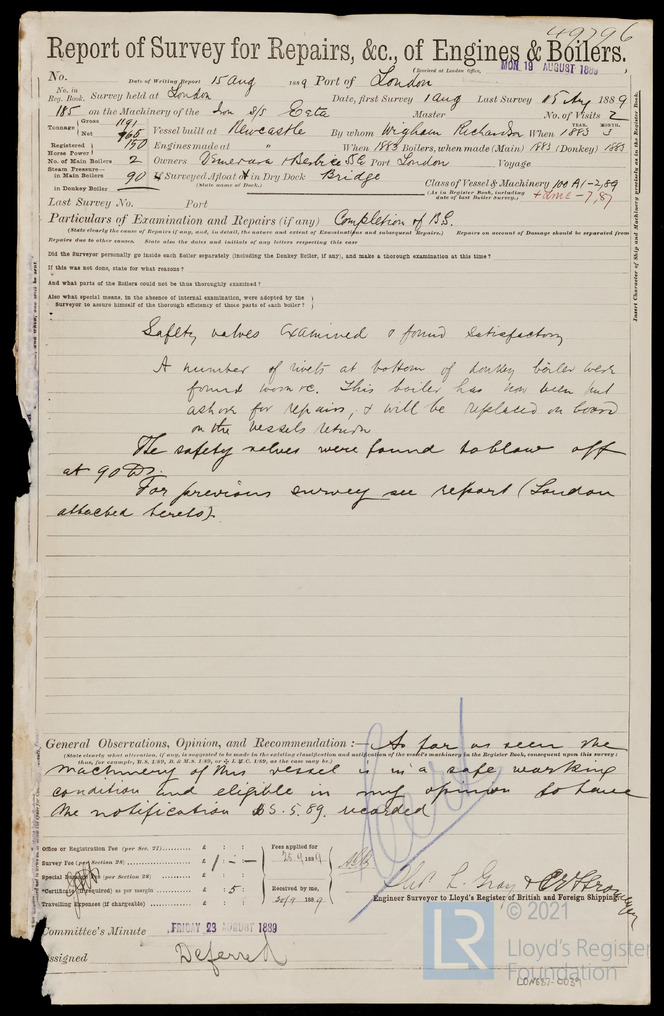 49796
Report of Survey for Repairs, &c., of Engines & Boilers.
(Received at London Office, MON. 19 AUGUST 1889)
No. Date of Writing Report 15 Aug 1889 Port of London
No. in Reg. Book. Survey held at London Date, first Survey 1 Aug Last Survey 15 Aug 1889
185 on the Machinery of the Iron S/S Eeta Master No. of Visits 2
Tonnage Gross 1191 Net 765 Vessel built at Newcastle By whom Wigham Richardson When YEAR. 1883 MONTH. 3
Registered Horse Power 150 Engines made at " When 1883 Boilers, when made (Main) 1883 (Donkey) 1883
No. of Main Boilers 2 Owners Demerara & Berbice SS Co Port London Voyage
Steam Pressure— in Main Boilers 90 If Surveyed Afloat or in Dry Dock Bridge
(State name of Dock.)
in Donkey Boiler
Class of Vessel & Machinery 100 A1-2,89
(As in Register Book, including date of last Boiler Survey.) + LMC - 7,87
Last Survey No. Port
Particulars of Examination and Repairs (if any) Completion of B.S.
(State clearly the cause of Repairs if any, and, in detail, the nature and extent of Examinations and subsequent Repairs.) Repairs on account of Damage should be separated from
Repairs due to other causes. State also the dates and initials of any letters respecting this case
Did the Surveyor personally go inside each Boiler separately (including the Donkey Boiler, if any), and make a thorough examination at this time?
If this was not done, state for what reasons?
And what parts of the Boilers could not be thus thoroughly examined?
Also what special means, in the absence of internal examination, were adopted by the
Surveyor to assure himself of the thorough efficiency of those parts of each boiler?
Safety valves examined & found satisfactory
A number of rivets at bottom of donkey boiler were
found worn &c. This boiler has now been put
ashore for repairs, & will be replaced on board
on the vessels return
The safety valves were found to blow off
at 90 lbs.
For previous survey see report (London
attached hereto).
General Observations, Opinion, and Recommendation :— As far as seen the
(State clearly what alteration, if any, is suggested to be made in the existing classification and notification of the vessel's machinery in the Register Book, consequent upon this survey;
thus, for example, B.S. 1/89, B. & M.S. 1/89, or L.M.C. 1/89, as the case may be.)
machinery of this vessel is in a safe working
condition and eligible in my opinion to have
the notification BS. 5. 89. recorded
Cert
Office or Registration Fee (per Sec. 27) £ : :
Survey Fee (per Section 28) £ 1 : - : -
Special Damage Fee (per Section 28) £ : :
*Certificate (if required) as per margin : 5 :
Travelling Expenses (if chargeable) £ : :
Fees applied for
Received by me,
Thos. L. Gray &
Engineer Surveyor to Lloyd's Register of British and Foreign Shipping.
Committee's Minute FRIDAY 23 AUGUST 1889
Assigned Deferred
Insert Character of Ship and Machinery precisely as in the Register Book.
© 2021
LR
Lloyd's Register
Foundation
LON687-0039